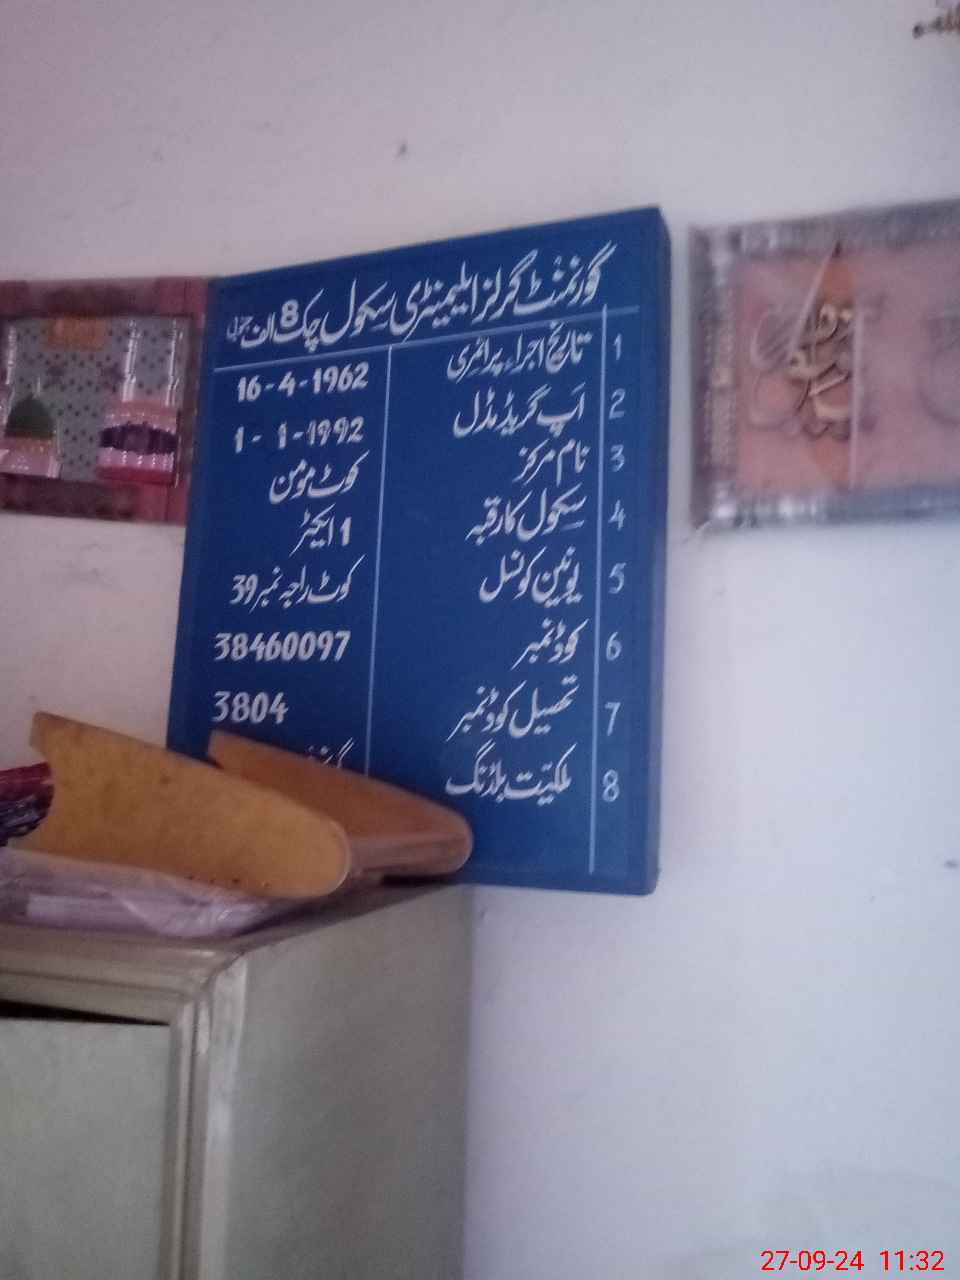 گورنمنٹ گرلز ایلیمنٹری سکول چک 8 جنوبی
1 تاریخ اجراء پرائمری 16-4-1962
2 اَپ گریڈ مڈل 1-1-1992
3 نام مرکز کوٹ مومن
4 سکول کا رقبہ 1 ایکٹر
5 یونین کونسل کوٹ راجہ نمبر 39
6 کوڈ نمبر 38460097
7 تحصیل کوڈ نمبر 3804
8 ملکیّت بلڈنگ
27-09-24 11:32